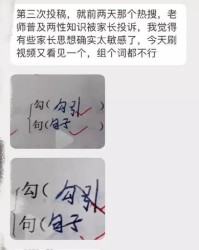 第三次投稿，就前两天那个热搜，老
师普及两性知识被家长投诉，我觉得
有些家长思想确实太敏感了，今天刷
视频又看见一个，组个词都不行
勾（勾引）
句（句子）
勾（勾引）
句（句子）